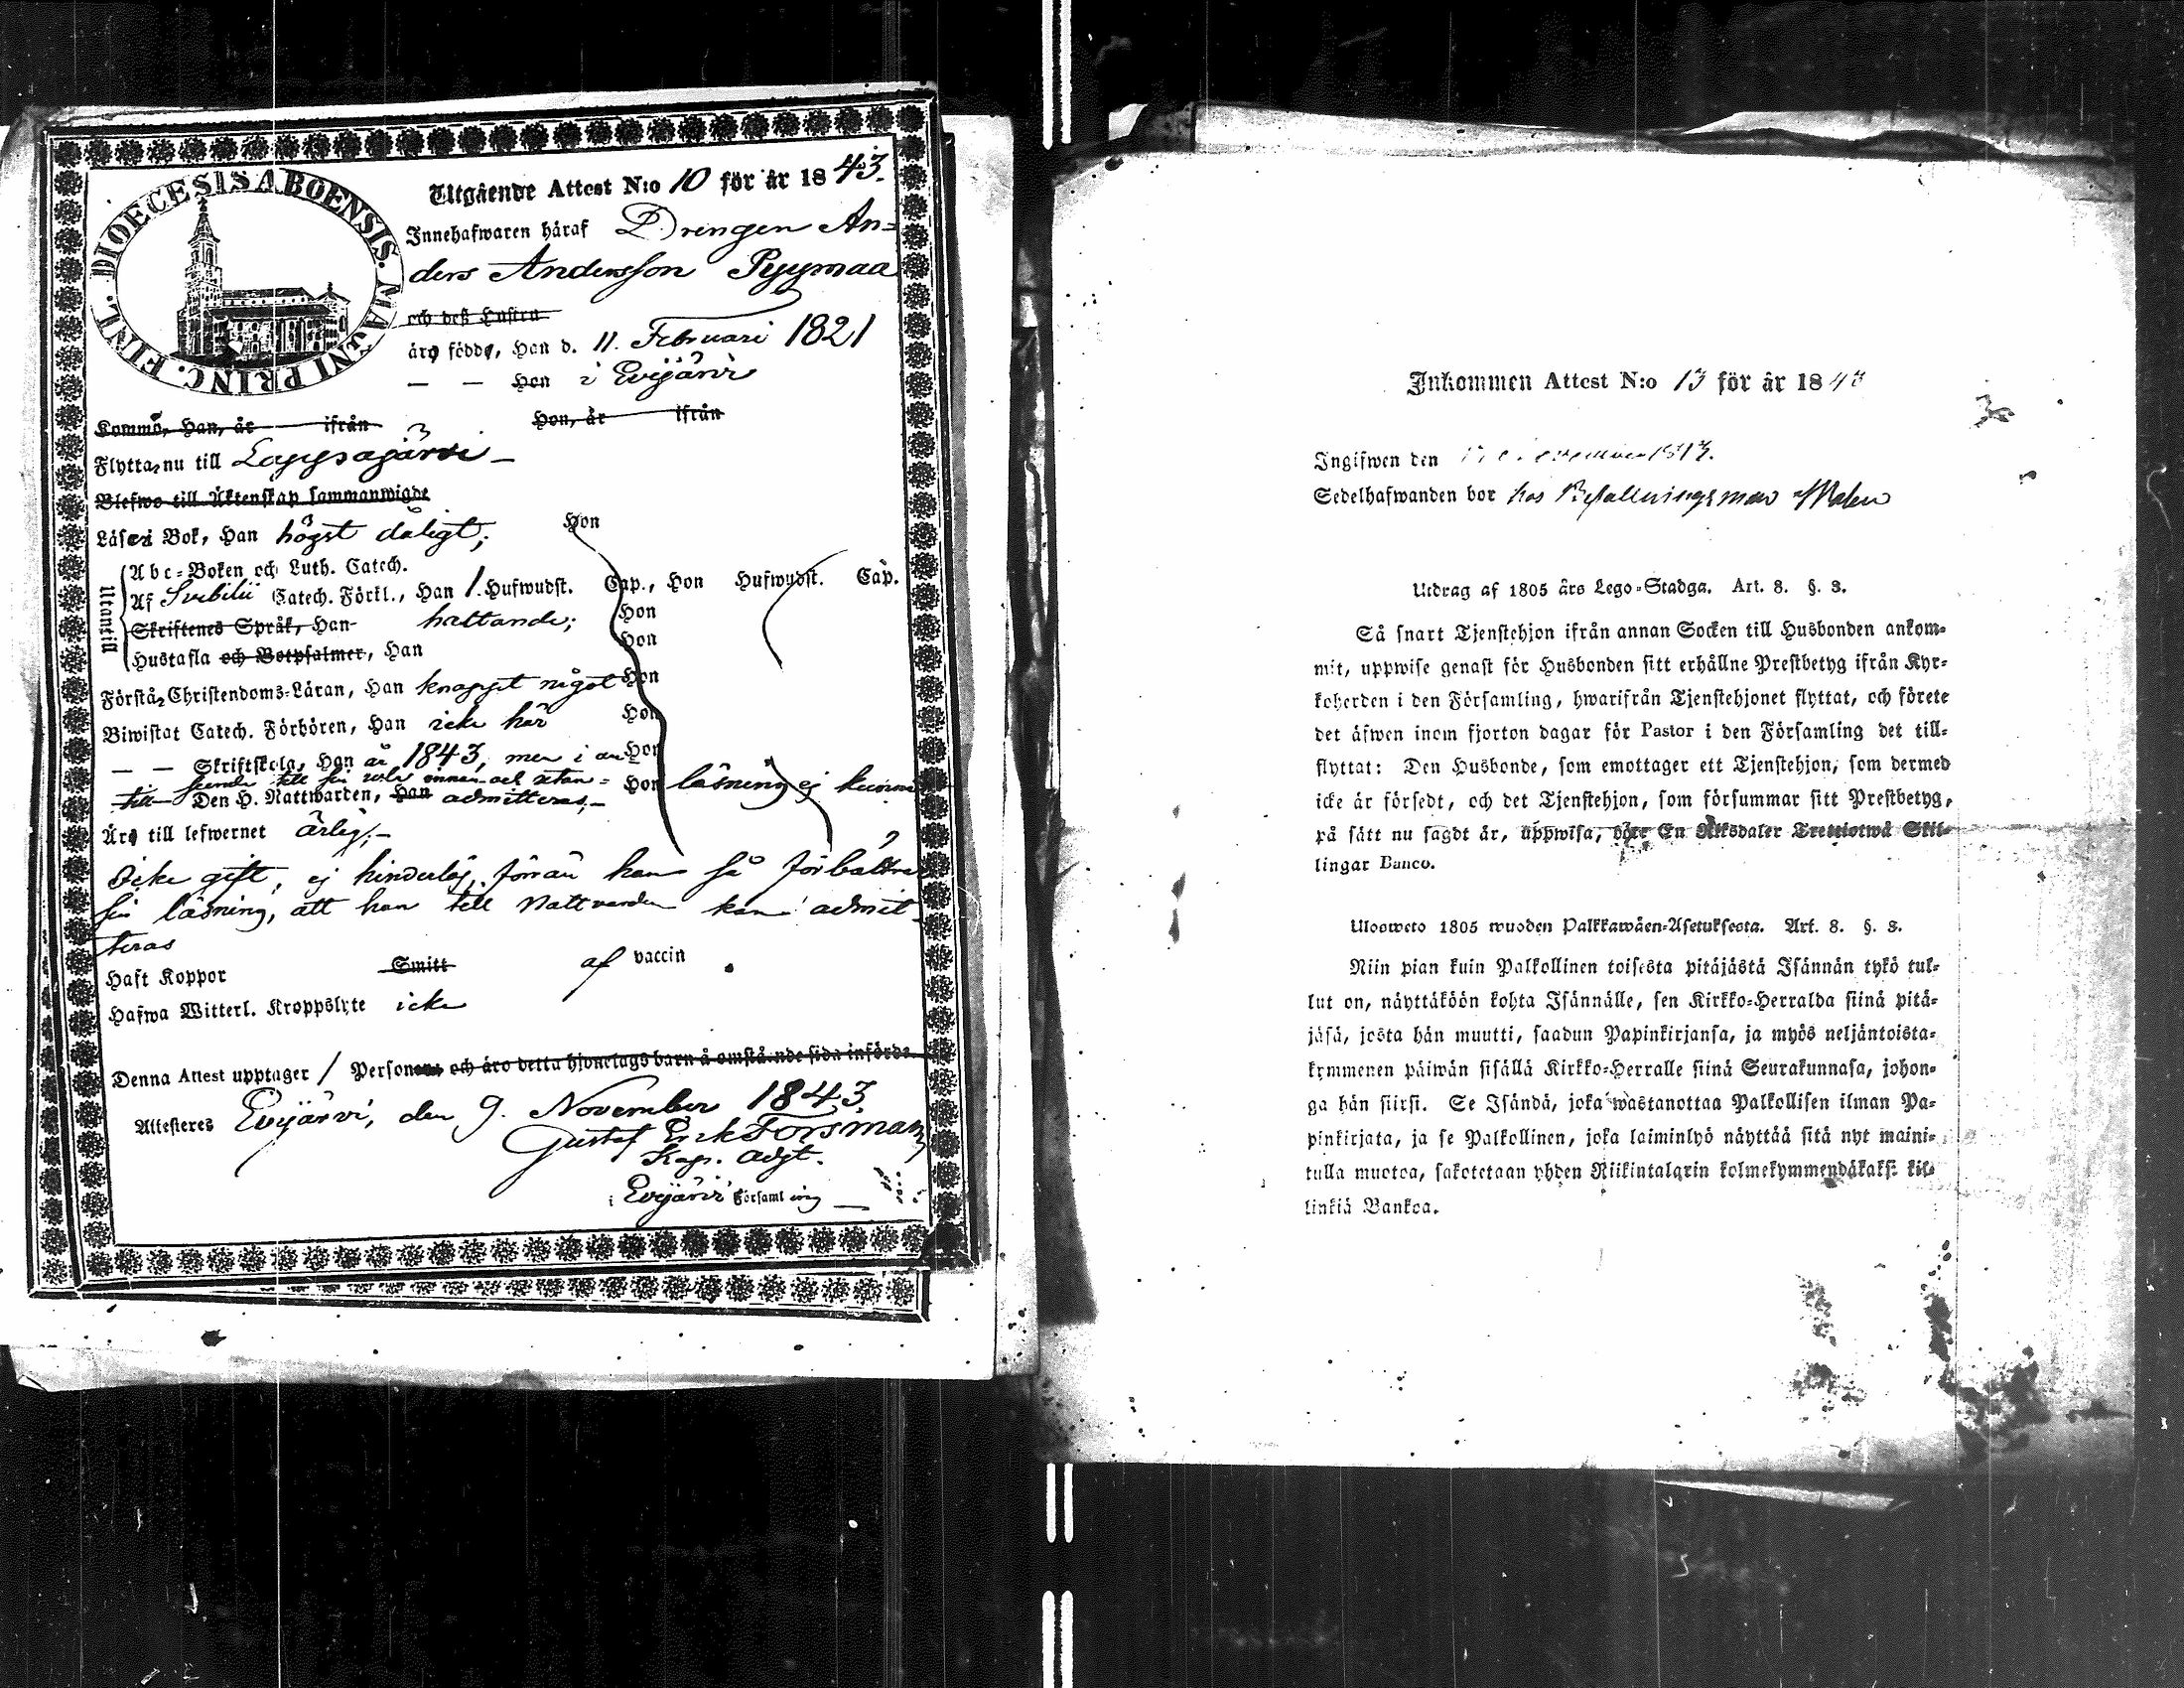 DIOECESIS ABOENSIS. MAGNI PRINC. FINL.
Utgående Attest N:o 10 för år 1843.
Innehafwaren häraf Drengen An=
ders Andersson Pyymaa
och deß Hustru
äro födde, Han d. 11. Februari 1821
— — Hon i Evijärvi
Kommo, Han, år ifrån Hon, år ifrån
Flytta nu till Lappajärvi —
Blefwo till Äktenskap sammanwigde
Läsa i Bok, Han högst dåligt; Hon
Utantill
Abc-Boken och Luth. Catech.
Af Svebilii Catech. Förkl., Han 1. Hufwudst. Cap., Hon Hufwudst. Cap.
Skriftenes Språk, Han haltande; Hon
Hustafla och Botpsalmer, Han Hon
Förstå Christendoms-Läran, Han knappt något Hon
Biwistat Catech. Förhören, Han icke här Hon
— — Skriftskola, Han år 1843, men i an Hon
seende till sin usla innan och utan= Hon läsning ej kunnat
till Den H. Nattwarden, Han admitteras,—
Äro till lefwernet ärlig;—
Icke gift, ej hinderlös, förän han så förbättrat
sin läsning, att han till Nattvarden kan admit-
teras
Haft Koppor Smitt af vaccin
Hafwa Witterl. Kroppslyte icke
Denna Attest upptager / Personer och äro detta hjonelags barn å omstående sida införde.
Attesteres Evijärvi, den 9. November 1843
Gustaf Erik Forsman
Kap. Adjt.
i Evijärvi Församling —
Inkommen Attest N:o 13 för år 1843
Ingifwen den 1843.
Sedelhafwanden bor hos Befallningsman Malm
Utdrag af 1805 års Lego-Stadga. Art. 8. §. 3.
Så snart Tjenstehjon ifrån annan Socken till Husbonden ankom-
mit, uppwise genast för Husbonden sitt erhållne Prestbetyg ifrån Kyr-
koherden i den Församling, hwarifrån Tjenstehjonet flyttat, och förete
det äfwen inom fjorton dagar för Pastor i den Församling det till-
flyttat: Den Husbonde, som emottager ett Tjenstehjon, som dermed
icke är försedt, och det Tjenstehjon, som försummar sitt Prestbetyg,
på sätt nu sagdt är, uppwisa, böte En Riksdaler Trettiotwå Skil-
lingar Banco.
Ulosweto 1805 wuoden Palkkawäen-Asetuksesta. Art. 8. §. 3.
Niin pian kuin Palkollinen toisesta pitäjästä Isännän tykö tul-
lut on, näyttäköön kohta Isännälle, sen Kirkko-Herralda siinä pitä-
jäsä, josta hän muutti, saadun Papinkirjansa, ja myös neljäntoista-
kymmenen päiwän sisällä Kirkko-Herralle siinä Seurakunnasa, johon-
ga hän siirsi. Se Isändä, joka wastanottaa Palkollisen ilman Pa-
pinkirjata, ja se Palkollinen, joka laiminlyö näyttää sitä nyt maini-
tulla muotoa, sakotetaan yhden Riikintalarin kolmekymmendäkaksi kil-
linkiä Bankoa.